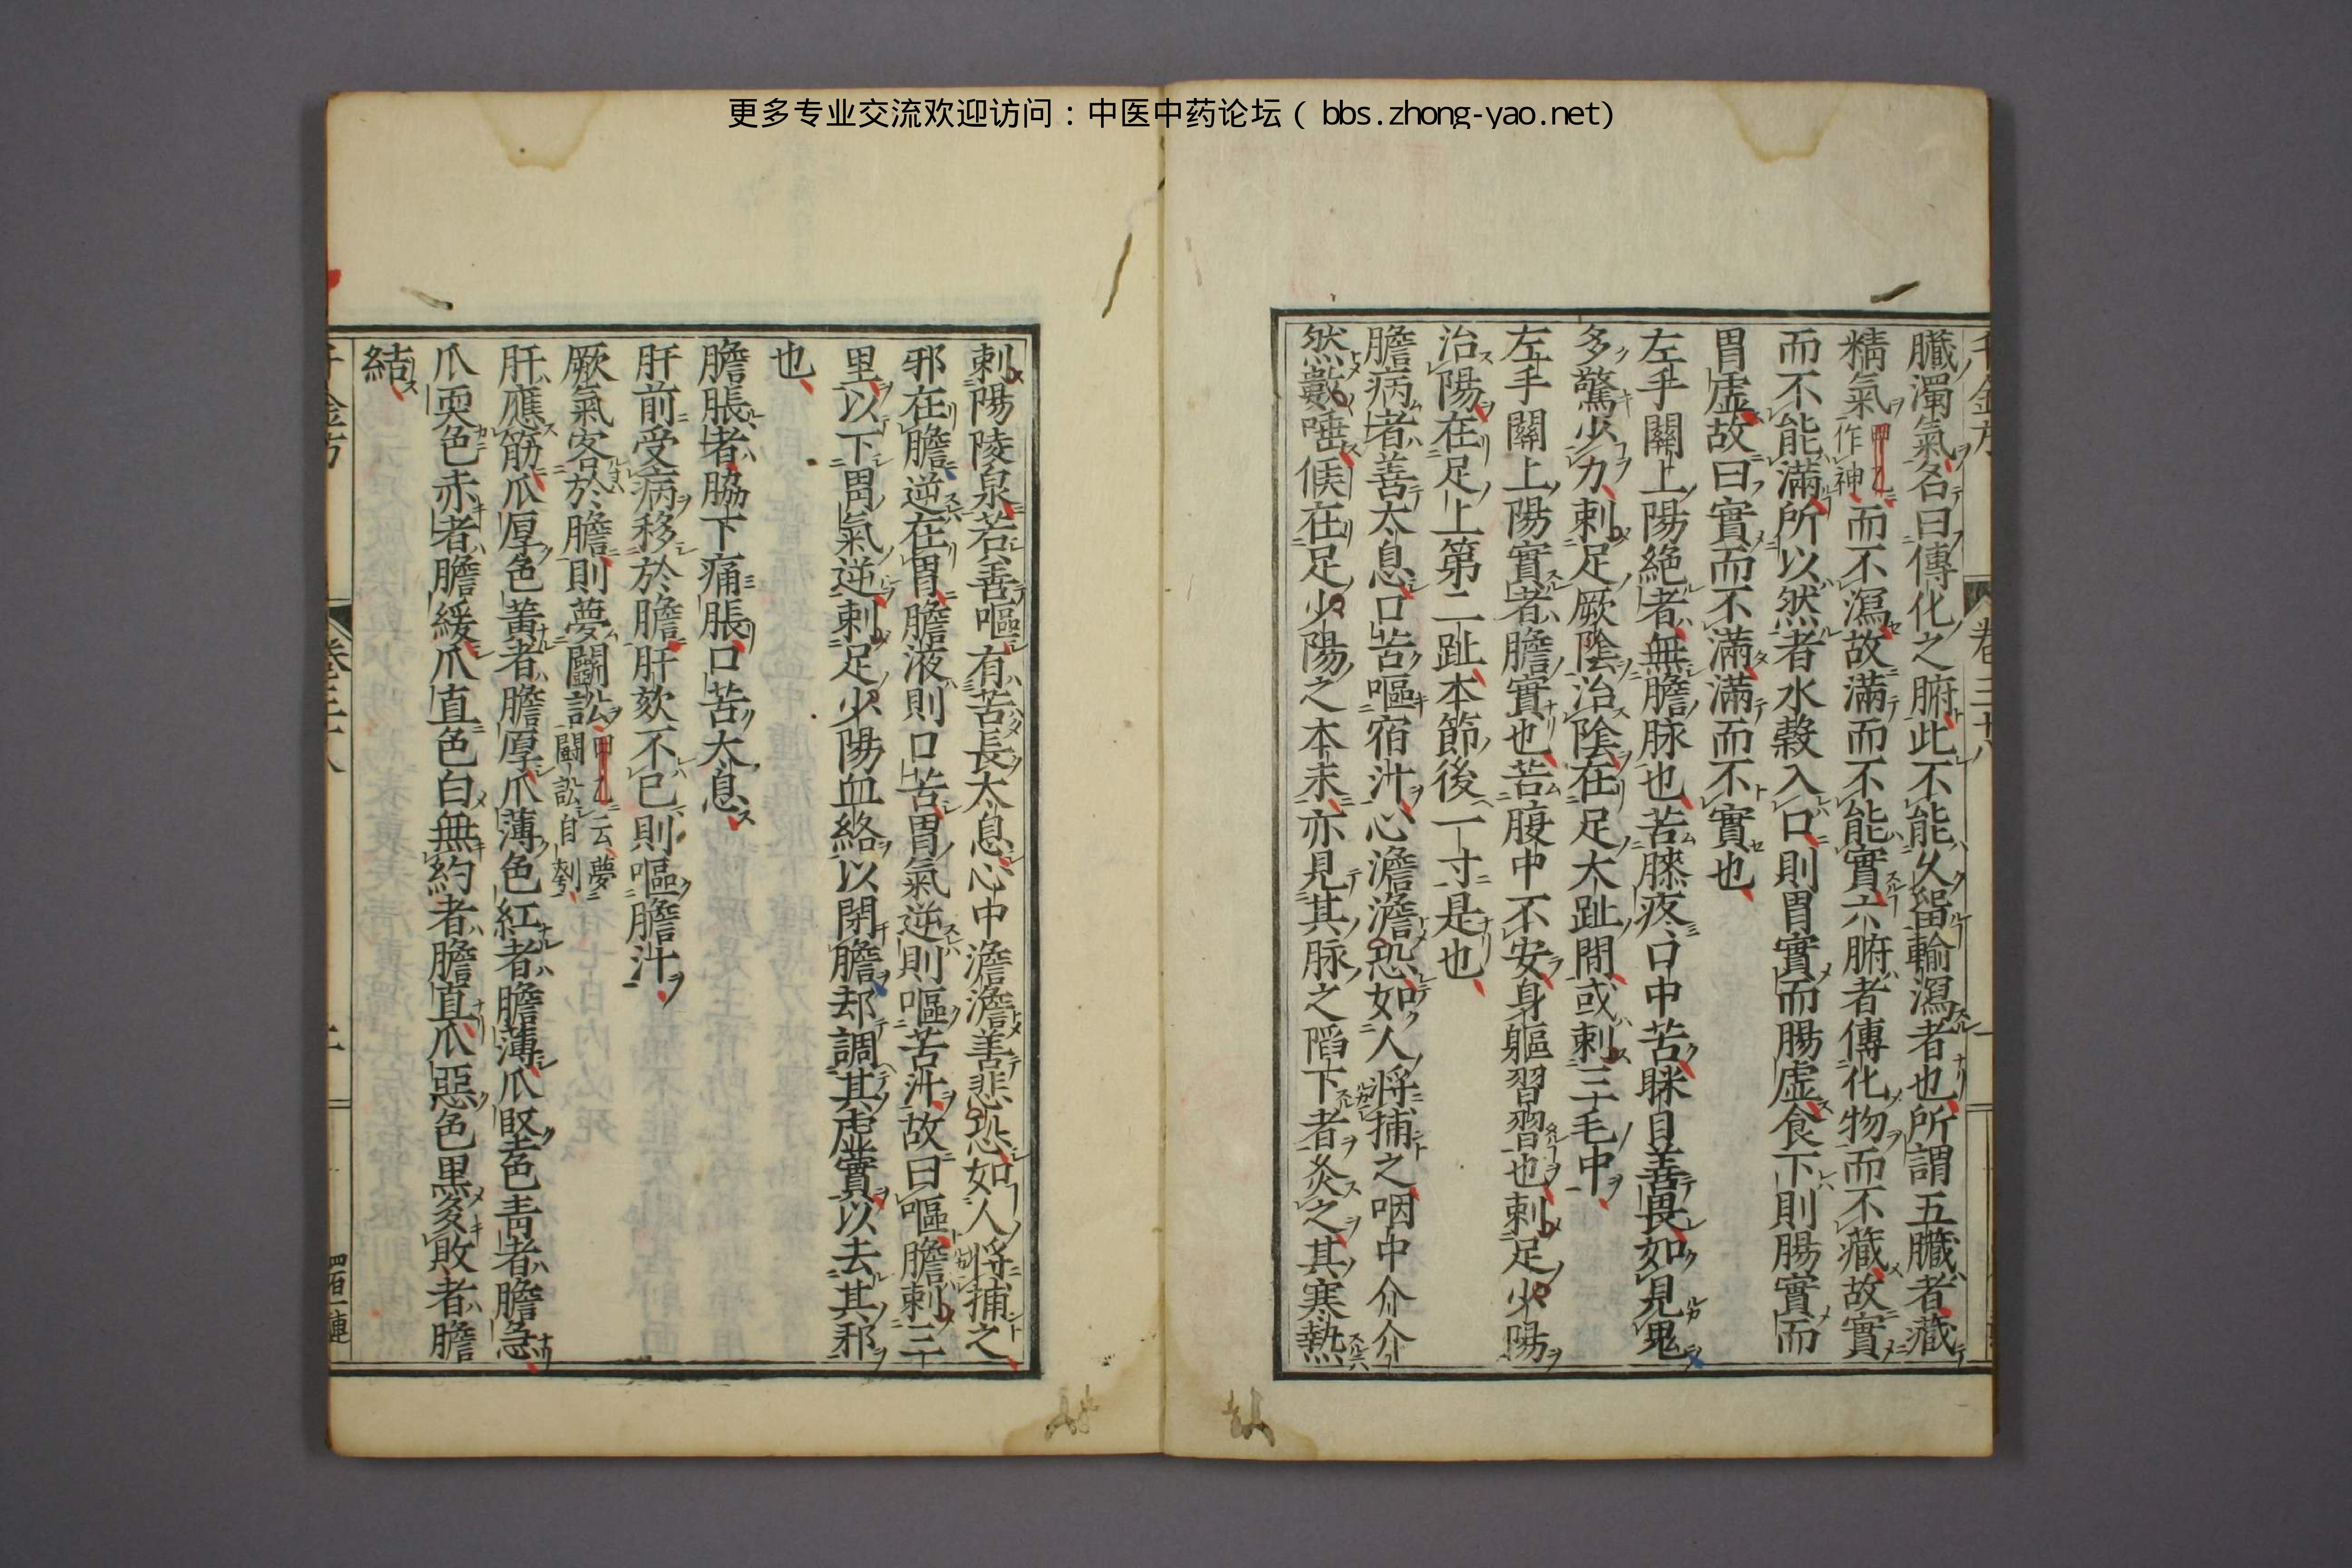 更多专业交流欢迎访问：中医中药论坛（bbs.zhong-yao.net）
臟濁氣名曰傳化之腑此不能久留輸瀉者也所謂五臟者藏
精氣甲乙作神而不瀉故滿而不能實六腑者傳化物而不藏故實
而不能滿所以然者水穀入口則胃實而腸虛食下則腸實而
胃虛故曰實而不滿滿而不實也
左手關上陽絕者無膽脉也苦膝疼口中苦眯目善畏如見鬼
多驚少力刺足厥陰治陰在足大趾間或刺三毛中
左手關上陽實者膽實也苦腹中不安身軀習習也刺足少陽
治陽在足上第二趾本節後一寸是也
膽病者善太息口苦嘔宿汁心澹澹恐如人將捕之咽中介介
然數唾候在足少陽之本末亦見其脉之陷下者灸之其寒熱
刺陽陵泉若善嘔有苦長太息心中澹澹善悲恐如人將捕之
邪在膽逆在胃膽液則口苦胃氣逆則嘔苦汁故曰嘔膽刺三
里以下胃氣逆刺足少陽血絡以閉膽却調其虛實以去其邪
也
膽脹者脇下痛脹口苦太息
肝前受病移於膽肝欬不已則嘔膽汁
厥氣客於膽則夢鬭訟甲乙云夢鬭訟自刳
肝應筋爪厚色黃者膽厚爪薄色紅者膽薄爪堅色青者膽急
爪耎色赤者膽緩爪直色白無約者膽直爪惡色黑多敗者膽
結